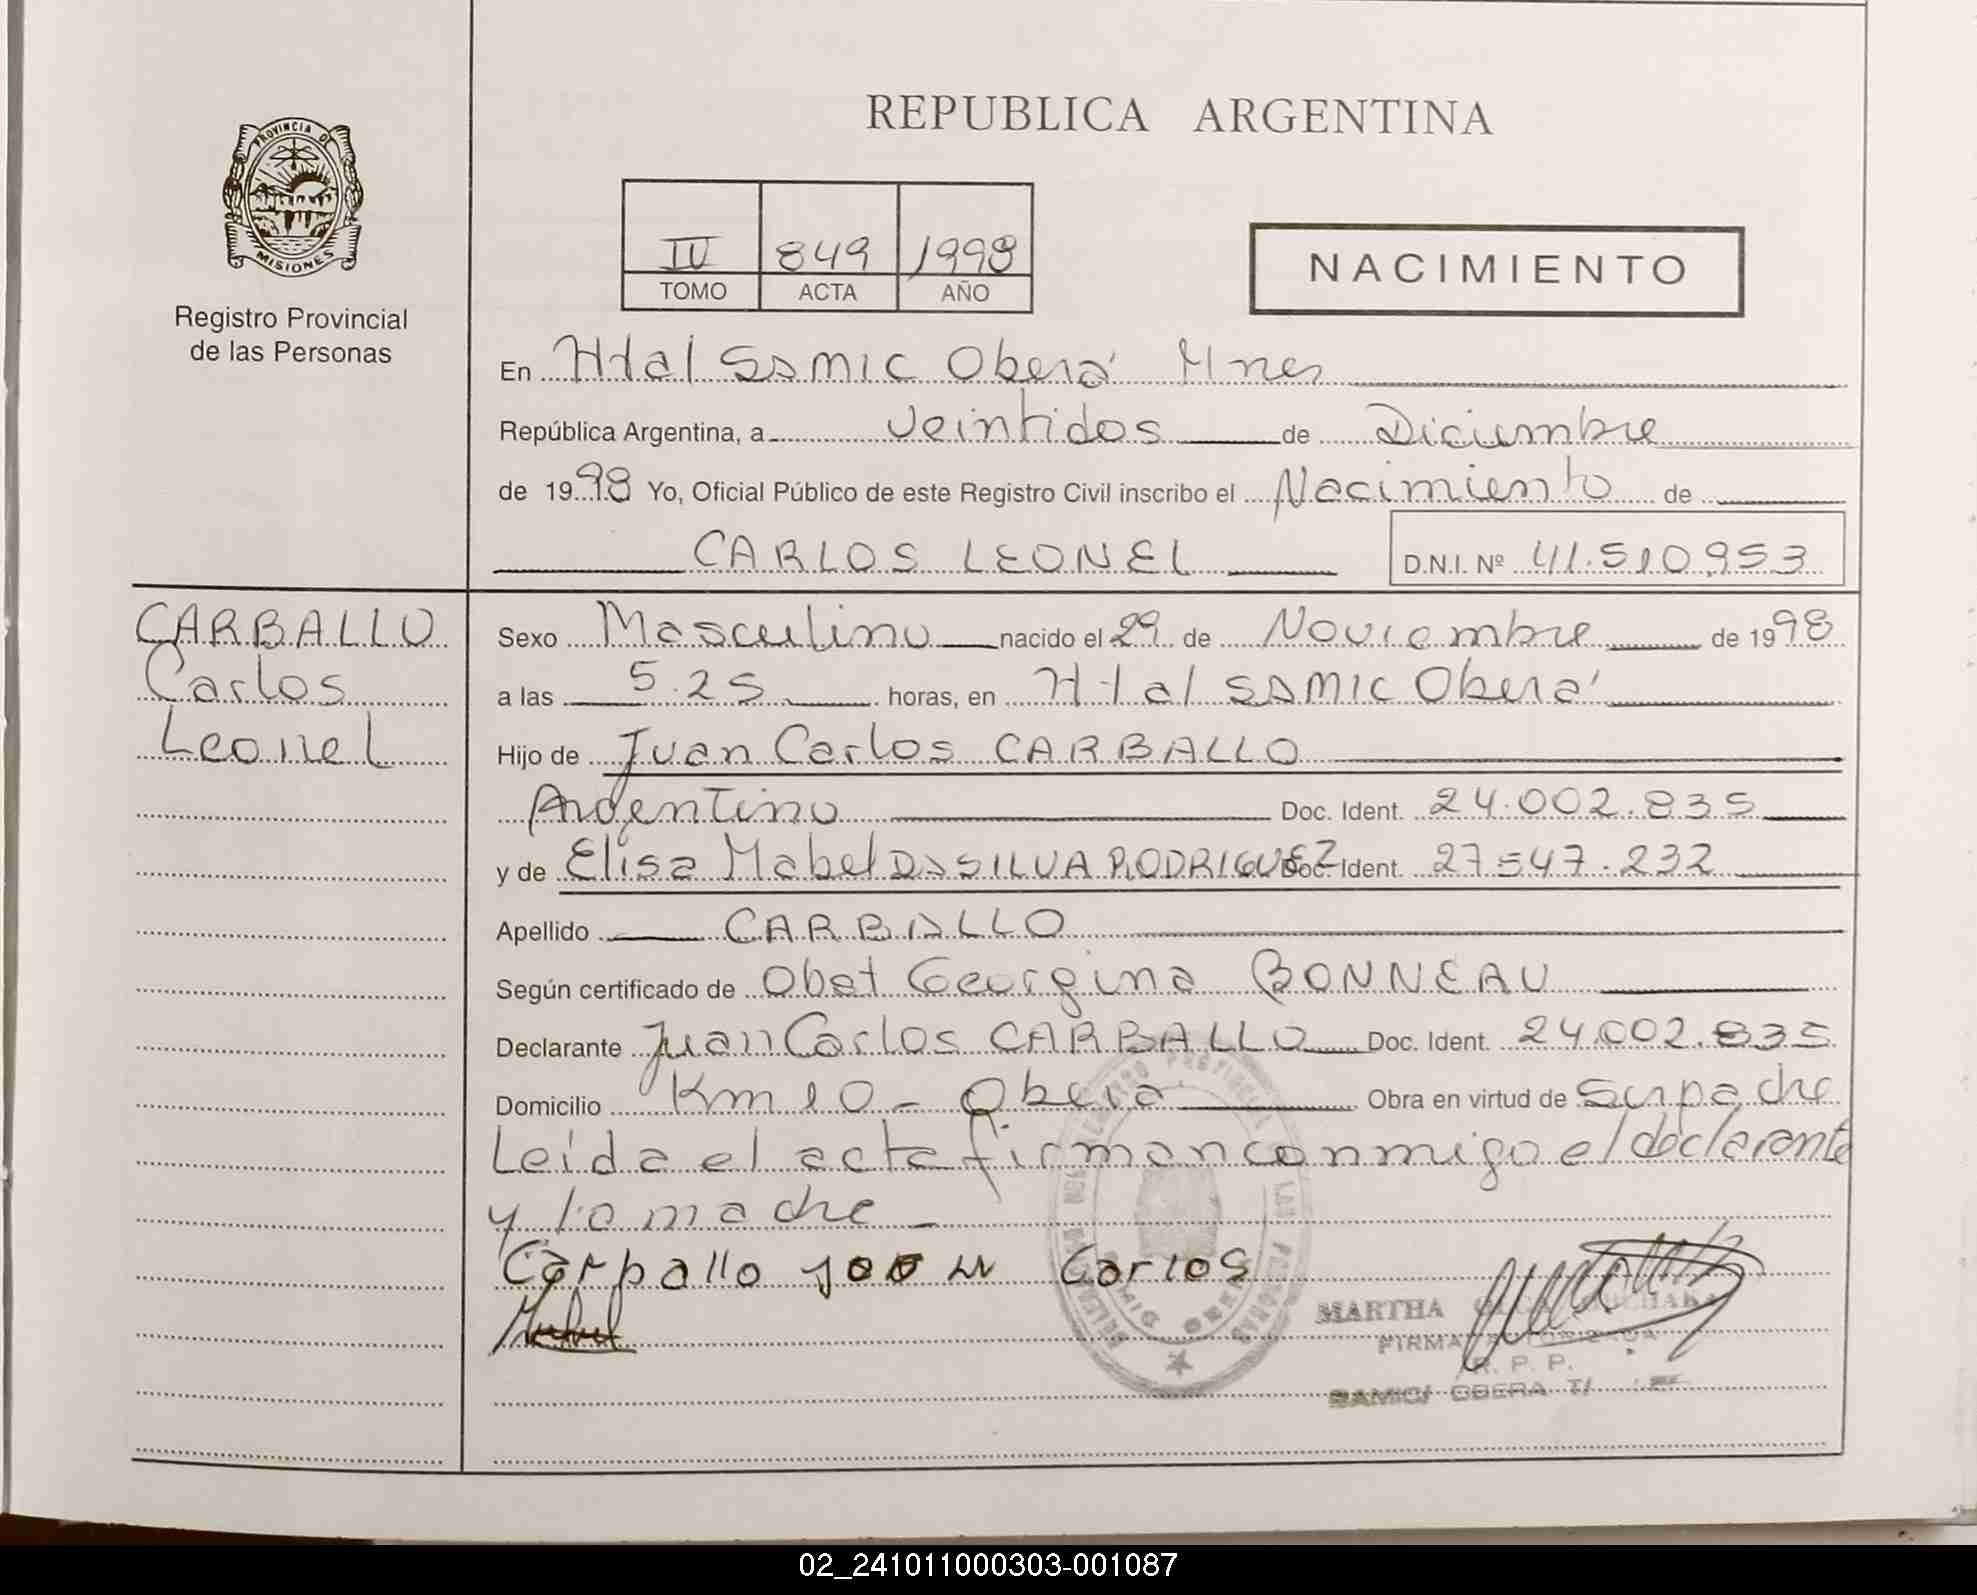 PROVINCIA DE
MISIONES
Registro Provincial
de las Personas
REPUBLICA ARGENTINA
IV 849 1998
TOMO ACTA AÑO
NACIMIENTO
En Htal SAMIC Oberá Mnes
República Argentina, a veintidos de Diciembre
de 1998 Yo, Oficial Público de este Registro Civil inscribo el Nacimiento de
CARLOS LEONEL D.N.I. Nº 41.510.953
CARBALLO
Carlos
Leonel
Sexo Masculino nacido el 29 de Noviembre de 1998
a las 5.25 horas, en Htal SAMIC Oberá
Hijo de Juan Carlos CARBALLO
Argentino Doc. Ident. 24.002.835
y de Elisa Mabel DA SILVA RODRIGUEZ Doc. Ident. 27.547.232
Apellido CARBALLO
Según certificado de Obst Georgina BONNEAU
Declarante Juan Carlos CARBALLO Doc. Ident. 24.002.835
Domicilio Km 10 - Oberá Obra en virtud de Su padre
Leída el acta firman conmigo el declarante
y la madre
Carballo Juan Carlos
MARTHA
FIRMA
R. P. P.
SAMIC OBERA
02_241011000303-001087